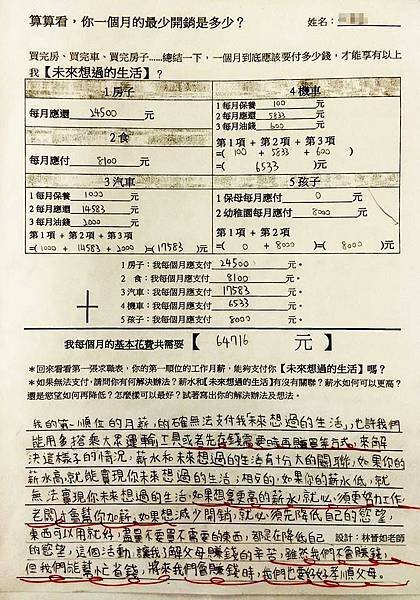 算算看，你一個月的最少開銷是多少？ 姓名：
買完房、買完車、買完房子……總結一下，一個月到底應該要付多少錢，才能享有以上
我【未來想過的生活】？
1 房子
每月應還 24500 元
2 食
每月應付 8100 元
3 汽車
1 每月保養 1000 元
2 每月應還 14583 元
3 每月油錢 2000 元
第1項 + 第2項 + 第3項
=( 1000 + 14583 + 2000 )=( 17583 )元
4 機車
1 每月保養 100 元
2 每月應還 5833 元
3 每月油錢 600 元
第1項 + 第2項 + 第3項
=( 100 + 5833 + 600 )
=( 6533 )元
5 孩子
1 保母每月應付 0 元
2 幼稚園每月應付 8000 元
第1項 + 第2項
=( 0 + 8000 )=( 8000 )元
1 房子：我每個月應支付 24500 元。
2 食：我每個月應支付 8100 元。
3 汽車：我每個月應支付 17583 元。
4 機車：我每個月應支付 6533 元。
+ 5 孩子：我每個月應支付 8000 元。
我每個月的基本花費共需要【 64716 元】
*回來看看第一張求職表，你的第一順位的工作月薪，能夠支付你【未來想過的生活】嗎？
*如果無法支付，請問你有何解決辦法？薪水和【未來想過的生活】有沒有關聯？薪水如何可以更高？
還是慾望如何再降低？怎麼樣可以最好？試著寫出你的解決辦法及想法。
我的第一順位的月薪，的確無法支付我「未來想過的生活」，也許我們
能用多搭乘大眾運輸工具或者先存錢需要時再購買等方式，來解
決這樣子的情況。薪水和未來想過的生活有十分大的關聯，如果你的
薪水高，就能實現你未來想過的生活，相反的，如果你的薪水低，就
無法實現你未來想過的生活。如果想拿更高的薪水，就必須更努力工作，
老闆才會幫你加薪，如果想減少開銷，就必須先降低自己的慾望，
東西可以用就好，盡量不要買不需要的東西，都是在降低自己 設計：林晉如老師
的慾望，這個活動，讓我了解父母賺錢的辛苦，雖然我們不會賺錢，
但我們能幫忙省錢，將來我們會賺錢時，我們也要好好孝順父母。